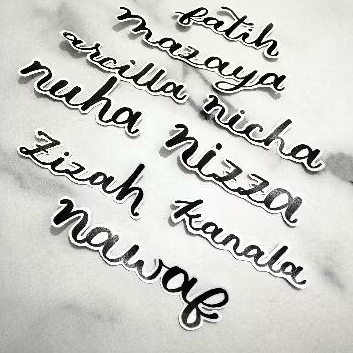 fatih
mazaya
arcilla
nicha
nuha
nizza
zizah
kanala
nawaf